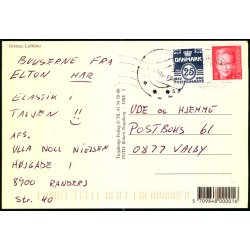 Grenaa: Luftfoto
BUKSERNE FRA
ELTON HAR
ELASTIK I
TALJEN !!
AFS.
ULLA NOLL NIELSEN
HØJGADE 1
8900 RANDERS
Str. 40
DANMARK
25
UDE OG HJEMME
POSTBOKS 61
0877 VALBY
5 709848 000016